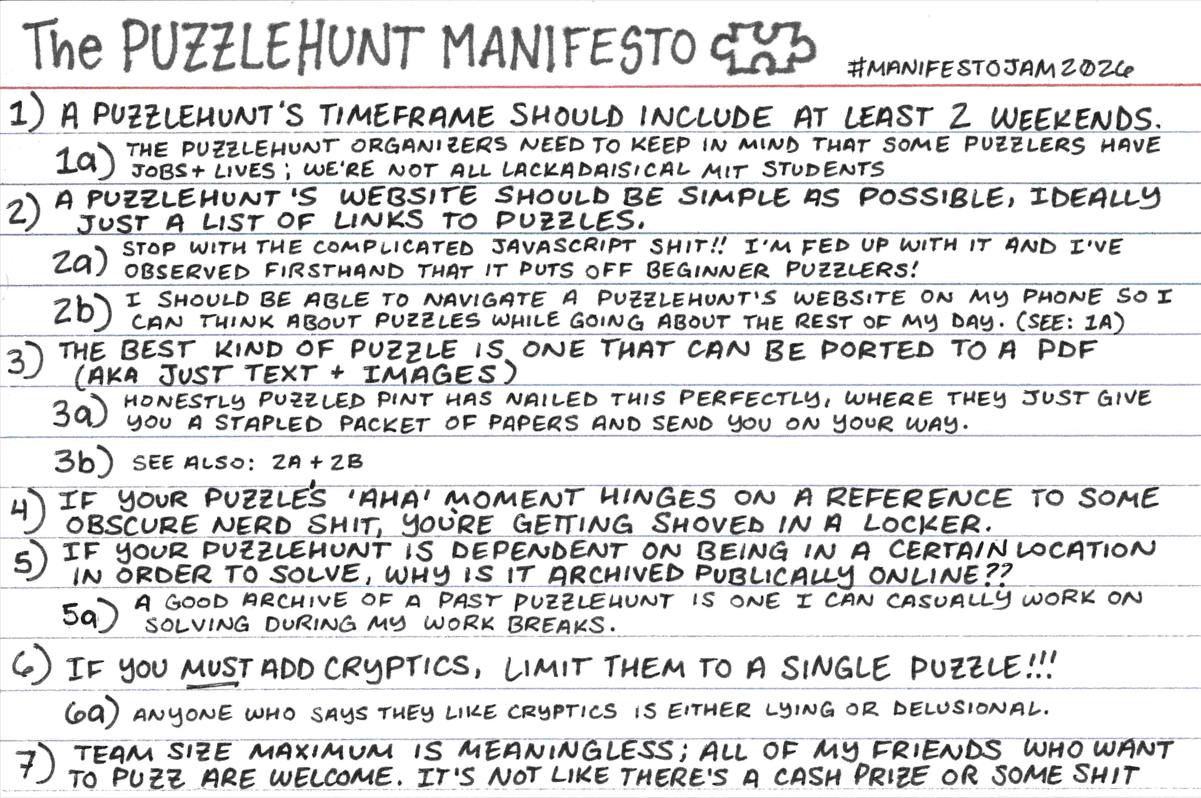 The PUZZLEHUNT MANIFESTO
#MANIFESTOJAM2026
1) A PUZZLEHUNT'S TIMEFRAME SHOULD INCLUDE AT LEAST 2 WEEKENDS.
1a) THE PUZZLEHUNT ORGANIZERS NEED TO KEEP IN MIND THAT SOME PUZZLERS HAVE
JOBS + LIVES; WE'RE NOT ALL LACKADAISICAL MIT STUDENTS
2) A PUZZLEHUNT'S WEBSITE SHOULD BE SIMPLE AS POSSIBLE, IDEALLY
JUST A LIST OF LINKS TO PUZZLES.
2a) STOP WITH THE COMPLICATED JAVASCRIPT SHIT!! I'M FED UP WITH IT AND I'VE
OBSERVED FIRSTHAND THAT IT PUTS OFF BEGINNER PUZZLERS!
2b) I SHOULD BE ABLE TO NAVIGATE A PUZZLEHUNT'S WEBSITE ON MY PHONE SO I
CAN THINK ABOUT PUZZLES WHILE GOING ABOUT THE REST OF MY DAY. (SEE: 1A)
3) THE BEST KIND OF PUZZLE IS ONE THAT CAN BE PORTED TO A PDF
(AKA JUST TEXT + IMAGES)
3a) HONESTLY PUZZLED PINT HAS NAILED THIS PERFECTLY, WHERE THEY JUST GIVE
YOU A STAPLED PACKET OF PAPERS AND SEND YOU ON YOUR WAY.
3b) SEE ALSO: 2A + 2B
4) IF YOUR PUZZLE'S 'AHA' MOMENT HINGES ON A REFERENCE TO SOME
OBSCURE NERD SHIT, YOU'RE GETTING SHOVED IN A LOCKER.
5) IF YOUR PUZZLEHUNT IS DEPENDENT ON BEING IN A CERTAIN LOCATION
IN ORDER TO SOLVE, WHY IS IT ARCHIVED PUBLICALLY ONLINE??
5a) A GOOD ARCHIVE OF A PAST PUZZLEHUNT IS ONE I CAN CASUALLY WORK ON
SOLVING DURING MY WORK BREAKS.
6) IF YOU MUST ADD CRYPTICS, LIMIT THEM TO A SINGLE PUZZLE!!!
6a) ANYONE WHO SAYS THEY LIKE CRYPTICS IS EITHER LYING OR DELUSIONAL.
7) TEAM SIZE MAXIMUM IS MEANINGLESS; ALL OF MY FRIENDS WHO WANT
TO PUZZ ARE WELCOME. IT'S NOT LIKE THERE'S A CASH PRIZE OR SOME SHIT